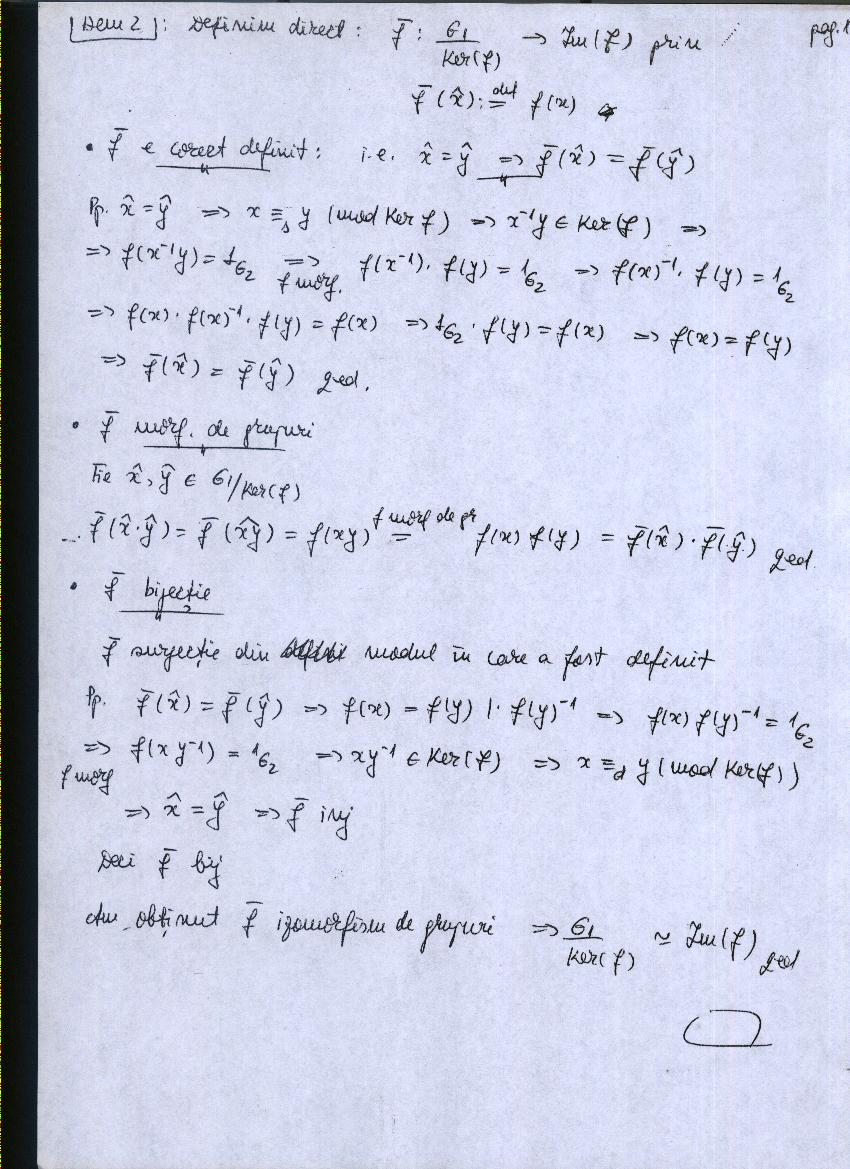 Dem 2 : Definim direct : f̄ : G₁/Ker(f) → Im(f) prin
pag. 1
f̄(x̂) :=^def f(x)
• f̄ e corect definit : i.e. x̂ = ŷ => f̄(x̂) = f̄(ŷ)
Pp. x̂ = ŷ => x ≡ₛ y (mod Ker f) => x⁻¹y ∈ Ker(f) =>
=> f(x⁻¹y) = 1_G₂ => f morf. f(x⁻¹)·f(y) = 1_G₂ => f(x)⁻¹·f(y) = 1_G₂
=> f(x)·f(x)⁻¹·f(y) = f(x) => 1_G₂·f(y) = f(x) => f(x) = f(y)
=> f̄(x̂) = f̄(ŷ) qed.
• f̄ morf. de grupuri
Fie x̂, ŷ ∈ G₁/Ker(f)
f̄(x̂·ŷ) = f̄(x̂y) = f(xy) =^(f morf de gr) f(x) f(y) = f̄(x̂)·f̄(ŷ) qed.
• f̄ bijecție
f̄ surjecție din modul în care a fost definit
Pp. f̄(x̂) = f̄(ŷ) => f(x) = f(y) |·f(y)⁻¹ => f(x) f(y)⁻¹ = 1_G₂
=> f morf f(xy⁻¹) = 1_G₂ => xy⁻¹ ∈ Ker(f) => x ≡_d y (mod Ker(f))
=> x̂ = ŷ => f̄ inj
Deci f̄ bij
Am obținut f̄ izomorfism de grupuri => G₁/Ker(f) ≃ Im(f) qed